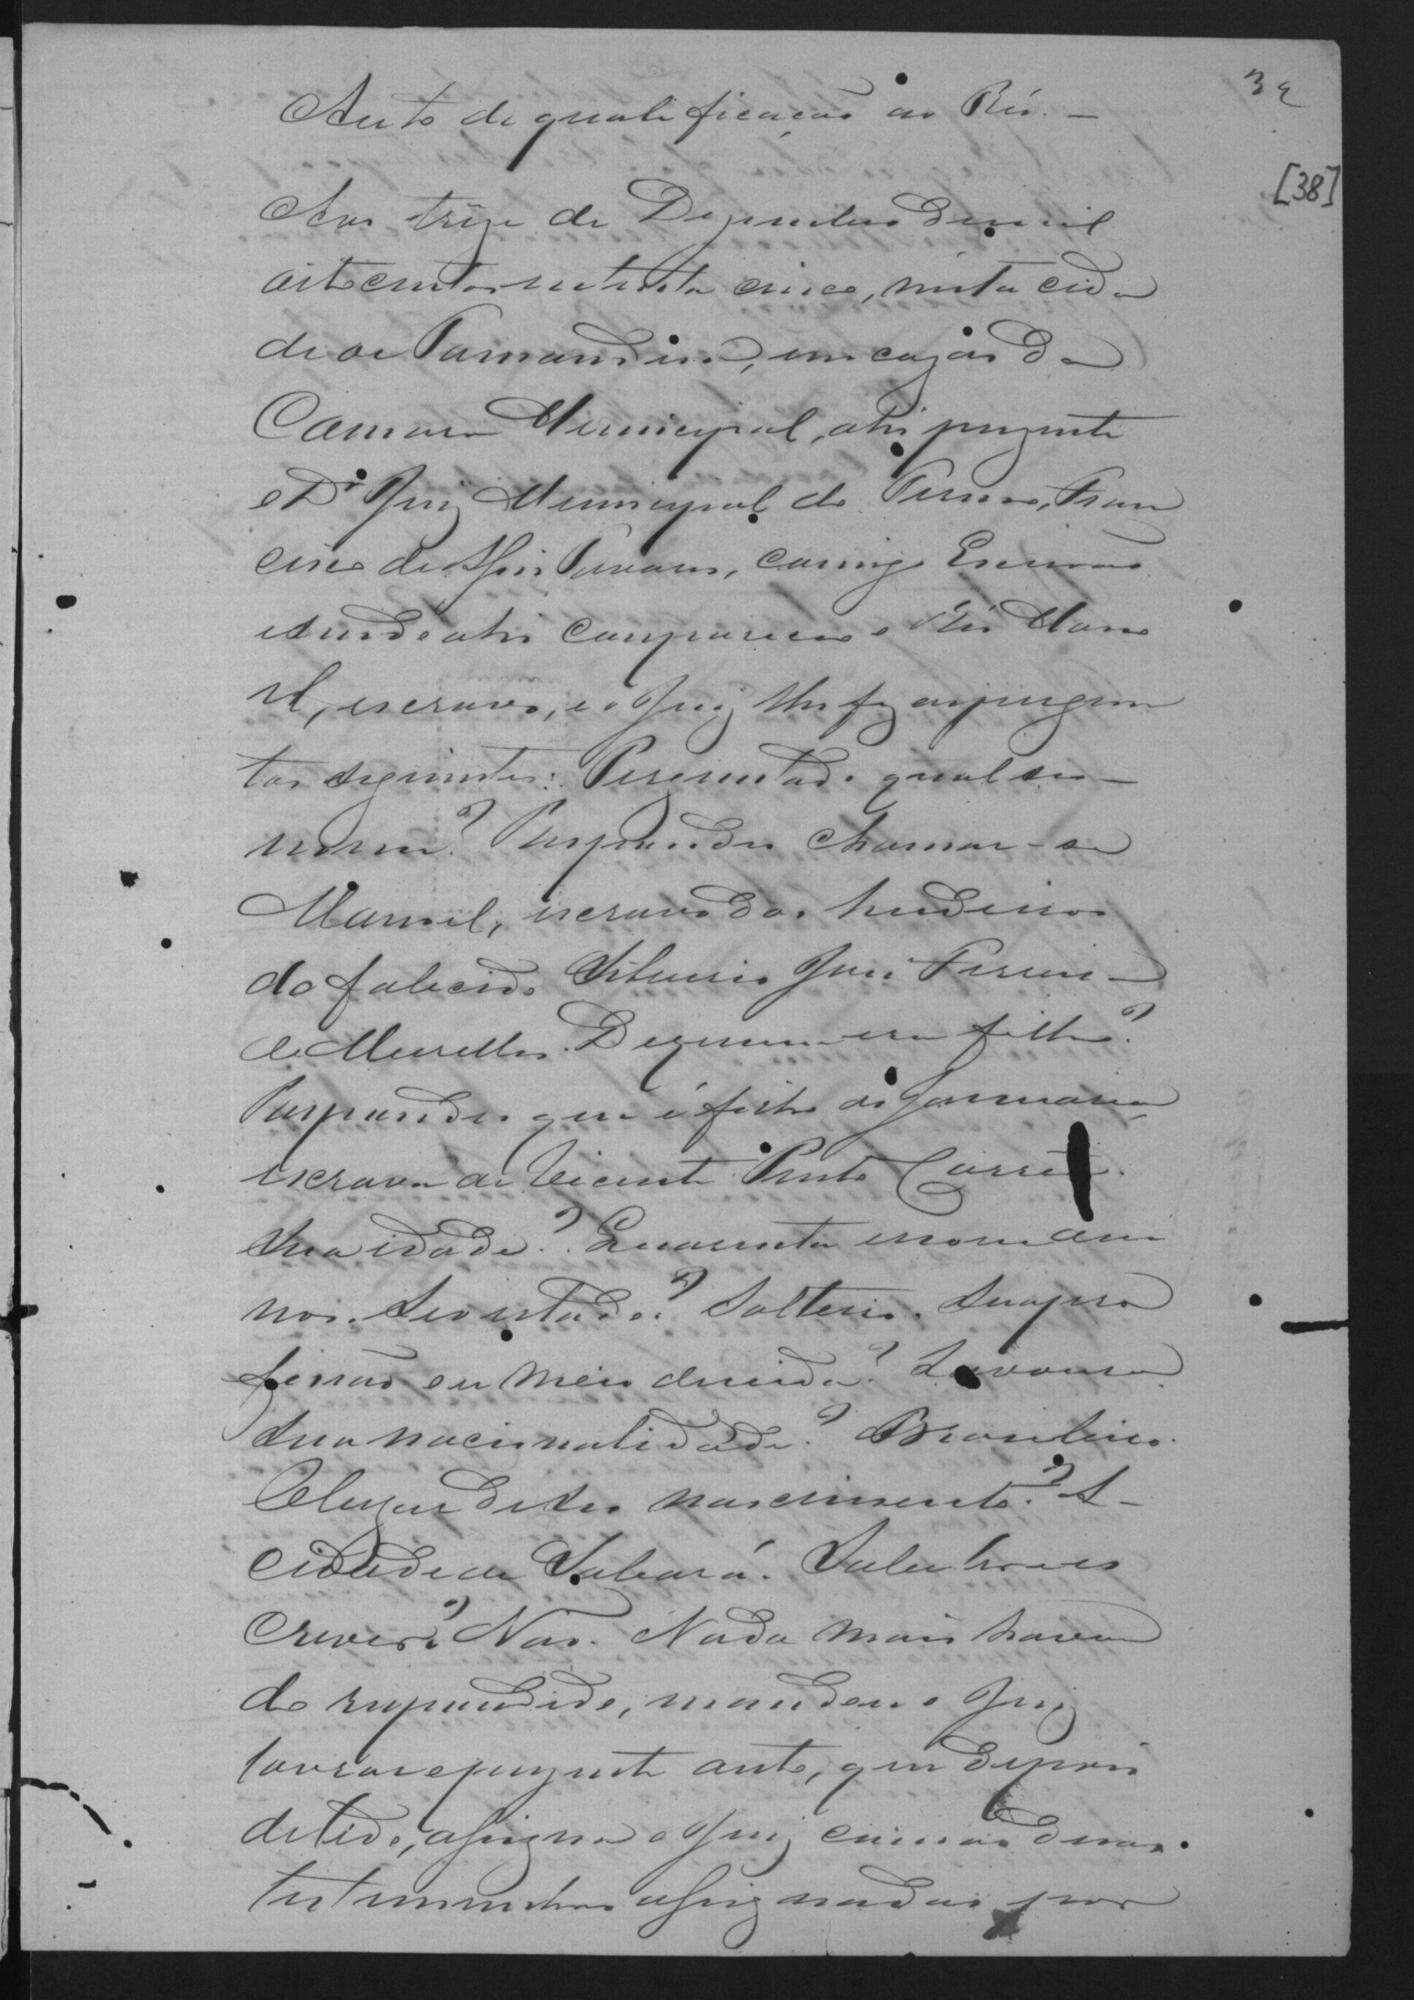 39
[38]
Auto de qualificação ao Réo. —
Aos treze de Dezembro de mil
oitocentos setenta cinco, nesta cida
de de Tamanduá, em cazas da
Camara Municipal, ahi prezente
o Dr Juiz Municipal do Termo, Fran
cisco de Assis Tavares, comigo Escrivão
sendo ahi compareceo o Réo Mano
el, escravo, e o Juiz lhe fez as pergun
tas seguintes: Perguntado qual seo
nome? Respondeo chamar-se
Manoel, escravo dos herdeiros
do falecido Silverio José Ferreira
de Meirelles. De quem era filho?
Respondeo que é filho de Januaria,
escrava de Vicente Pinto Corrêa.
Sua idade? Quarenta e nove an
nos. Seo estado? Solteiro. Sua pro
fissão ou meio de vida? Lavoura
Sua nacionalidade? Brasileiro.
O lugar de seo nascimento? A
Cidade de Sabará. Sabe ler e es
crever? Não. Nada mais haven
do respondido, mandou o Juiz
lavrar o prezente auto, que depois
de lido, assigna o Juiz com as duas
testemunhas assignadas por